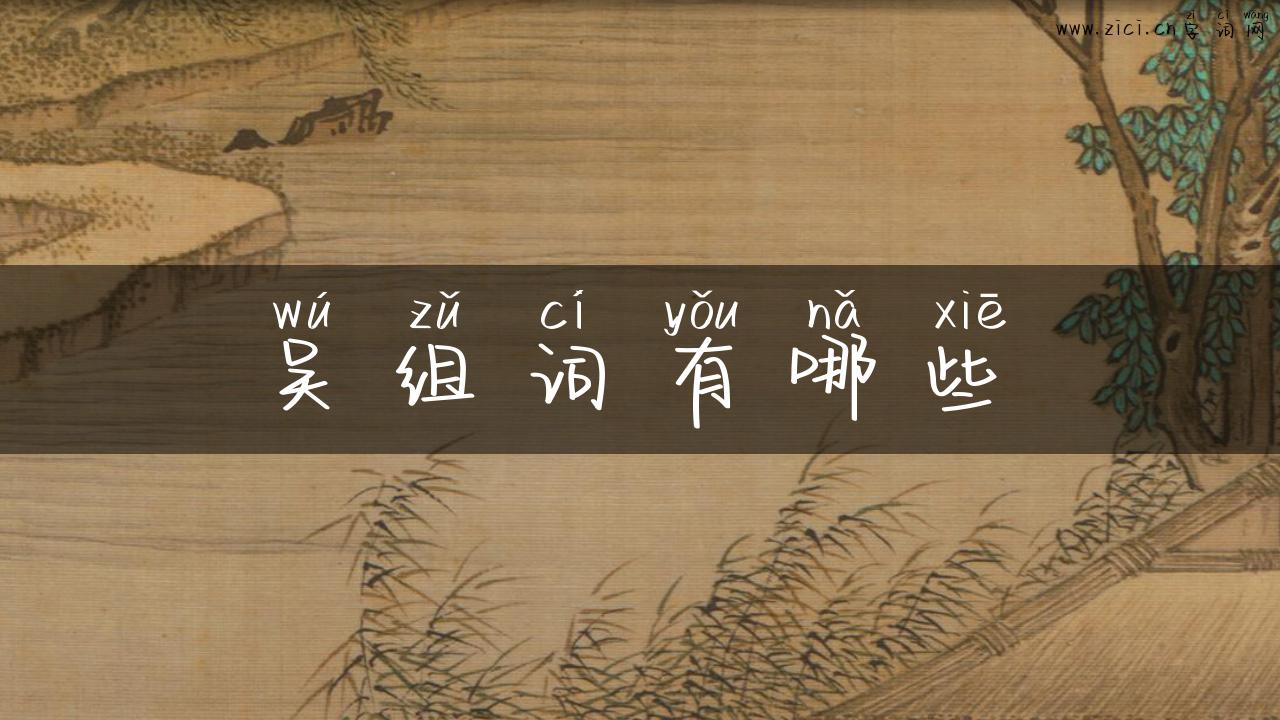 zì cí wǎng
www.zici.cn字词网
wú zǔ cí yǒu nǎ xiē
吴组词有哪些